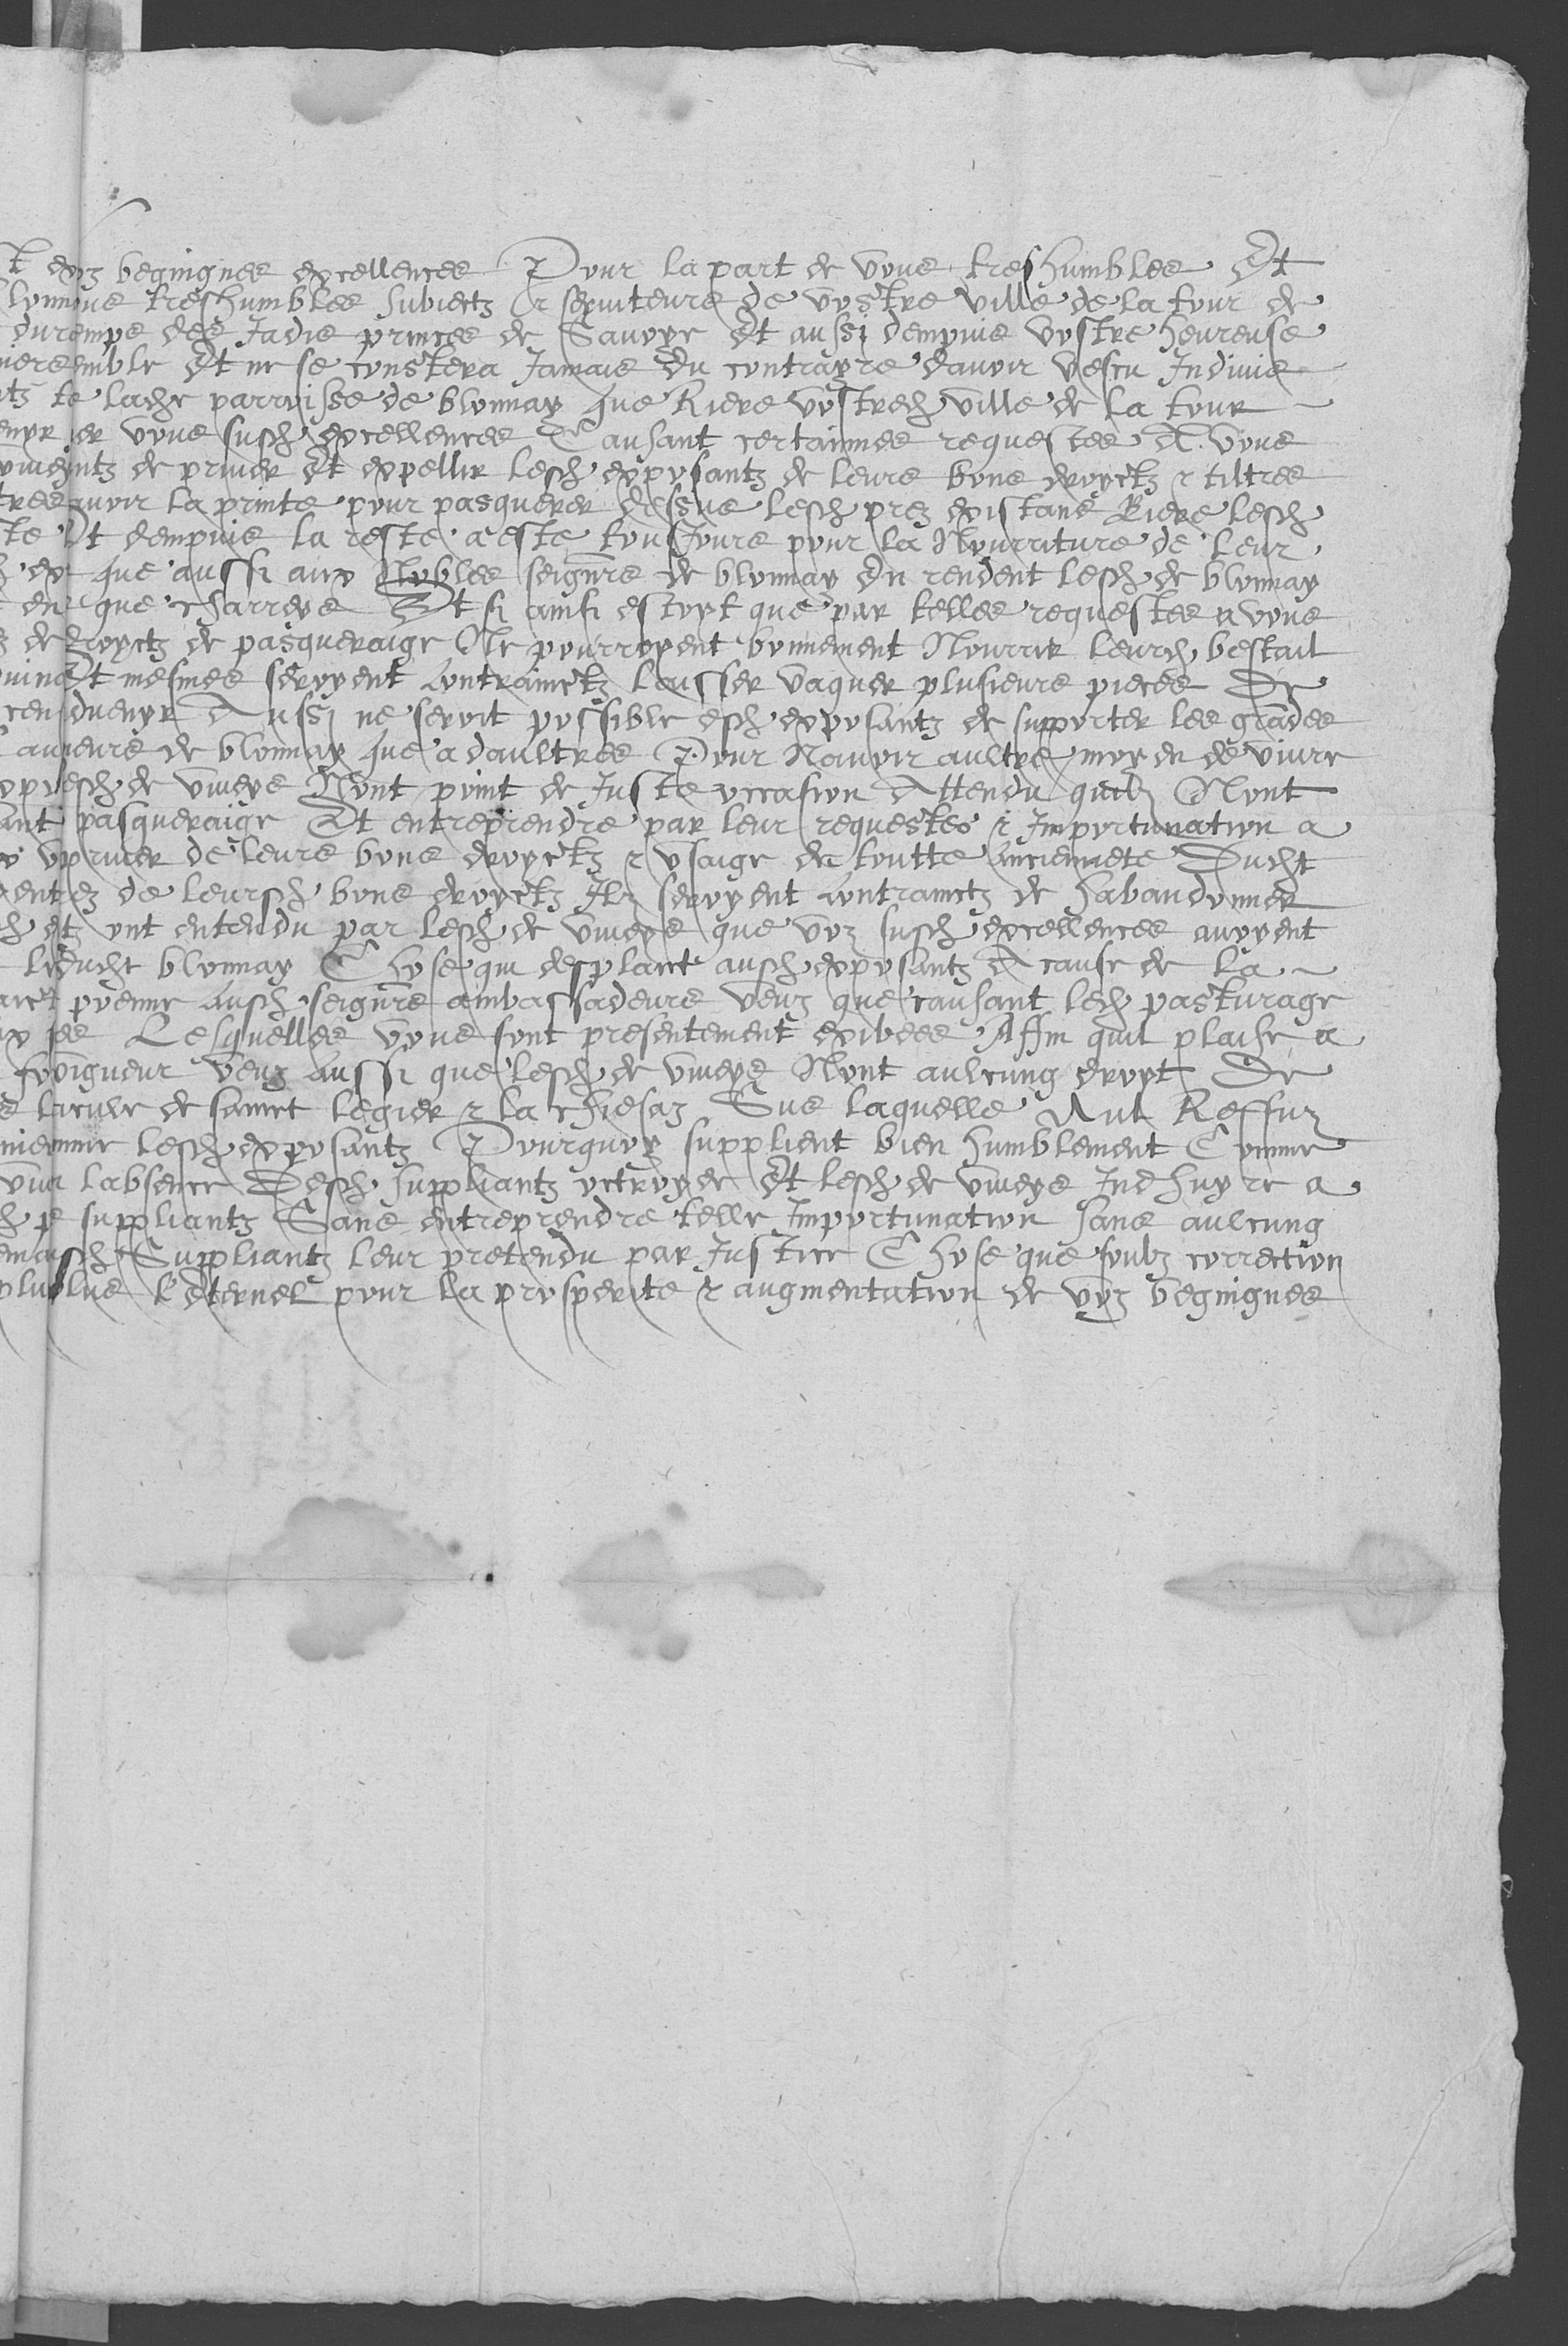 begnignes excellences Pour la part de vous treshumbles Et
treshumbles subiectz & seruiteurs de vostre ville de la tour de
du temps des Jadis princes de Sauoye Et aussi dempuis vostre heureuse
Et ne se constera Jamais du contrayre dauoir vescu Indiuis
te ladte parroisse de blonnay que Riere vostred ville de la tour
vous susd excellences Causant certainnes requestes A vous
de priuer Et expellir lesd exposantz de leurs bons droyctz & tiltres
auoir la printe pour pasquerer dessus lesd prez existans Riere lesd
Et dempuis la reste a este tousJours pour la Nourriture de leur
que aussi aux Nobles seignrs de blonnay En rendent lesd de blonnay
en que charreys Et si ainsi estoyt que par telles requestes a vous
de droyctz de pasqueraige Ne pourroyent bonnement Nourrir leurd bestail
Et mesmes seroyent contrainctz laisser vaquer plusieurs pieces De
Aussi ne seroit possible esd exposantz de supporter les grades
de blonnay que a daultres Pour Nauoir aultre moyen de viure
de viueys Nont point de Juste occasion Attendu quilz Nont
pasqueraige Et entreprendre par leur requestes & Importunation a
priuer de leurs bons droyctz & vsaige de toutte anciennete Ducht
de leursd bons droyctz Ilz seroyent contrainctz de habandonner
et ont entendu par lesd de viueys que voz susd excellences auoyent
blonnay Chose qui desplaict ausd exposantz A cause de la
ausd seignrs ambassadeurs veuz que causant led pasturage
Lesquelles vous sont presentement exibees Affin quil plaise a
veuz aussi que lesd de viueys Nont aulcung droyt De
de sainct legier & la chiesaz Sus laquelle Nul Reffuz
lesd exposantz Pourquoy supplient bien humblement Comme
labsence Desd suppliantz octroyer Et lesd de viueys Induyre a
suppliantz Sans entreprendre telle Importunation sans aulcung
Suppliantz leur pretendu par Justice Chose que soubz correction
l'Eternel pour la prosperite & augmentation de voz begnignes